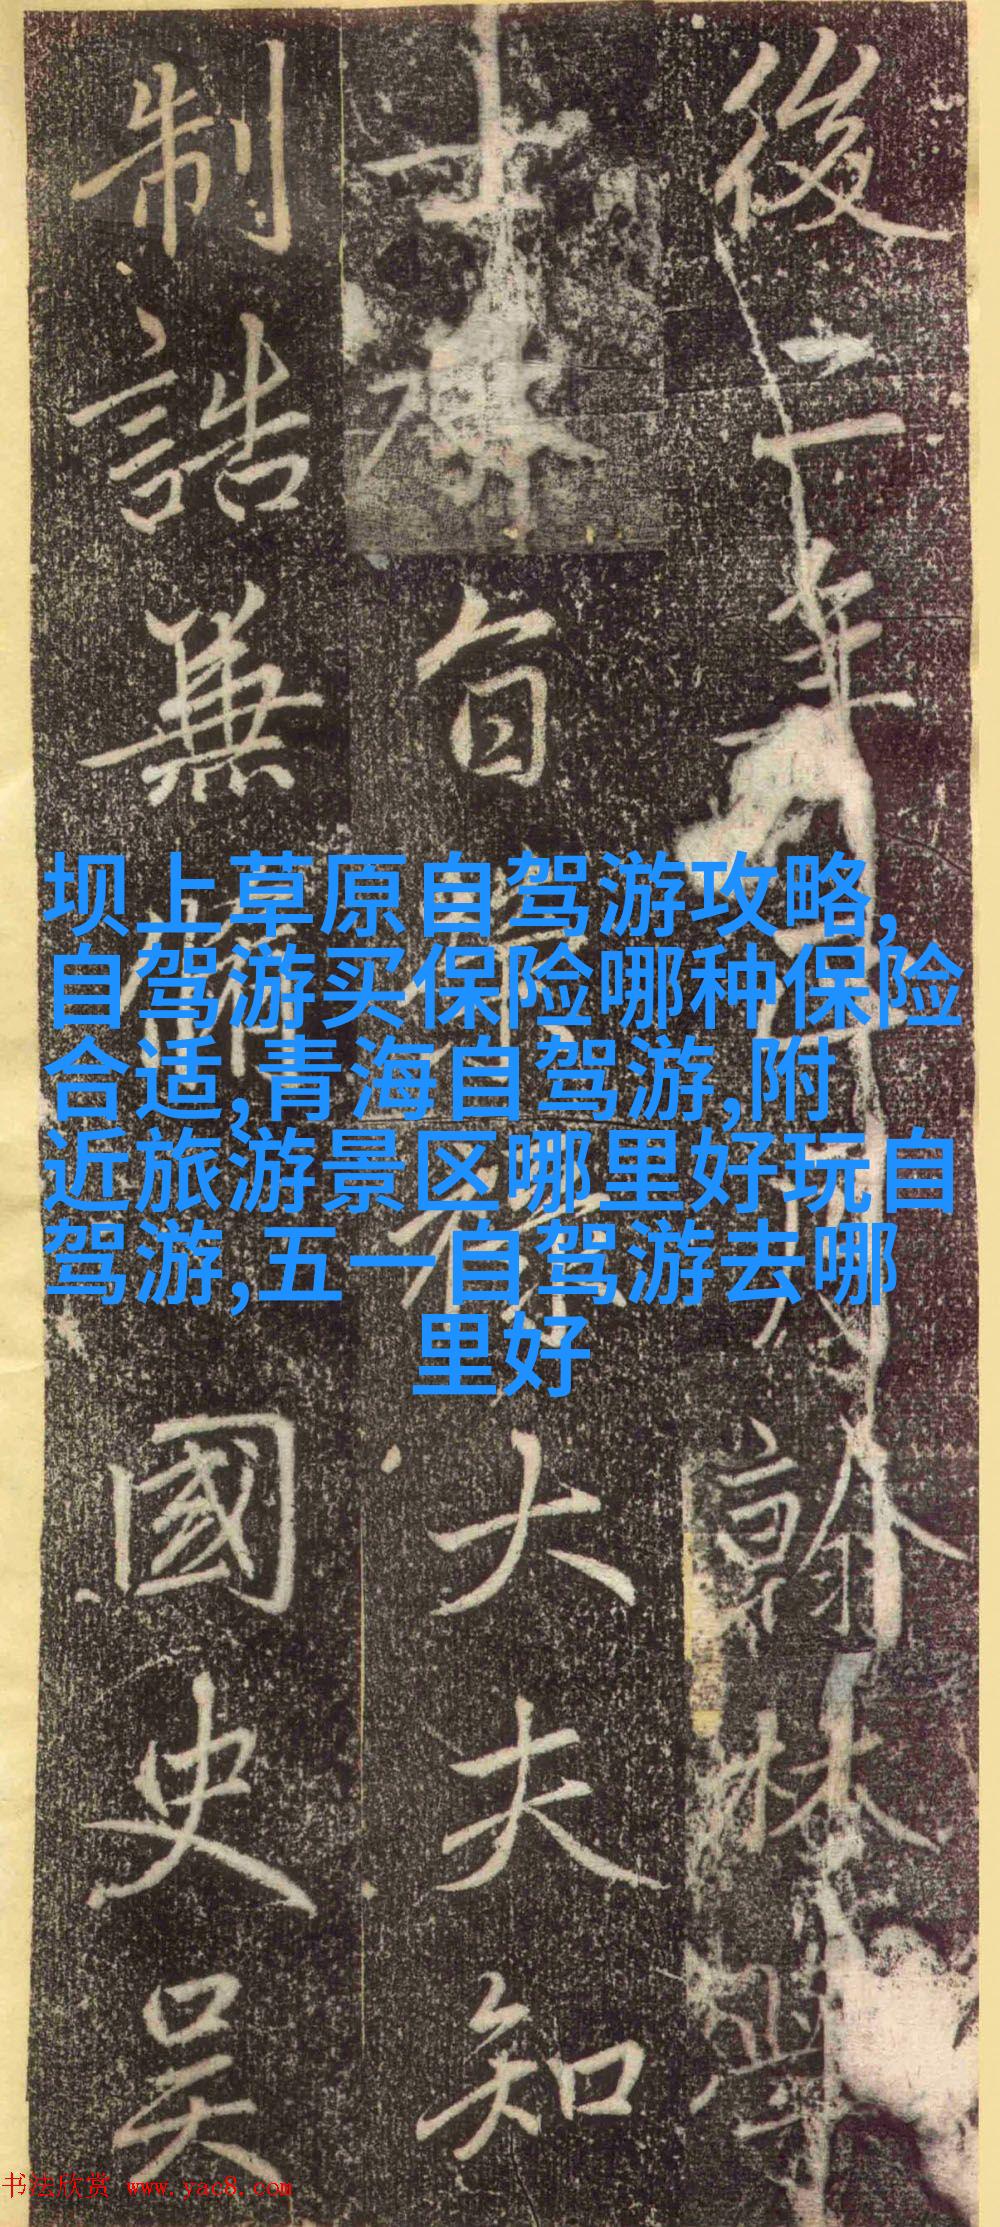 後二年月翰林學
士旨祿大夫知
制誥兼脩國史吴
坝上草原自驾游攻略,
自驾游买保险哪种保险
合适,青海自驾游,附
近旅游景区哪里好玩自
驾游,五一自驾游去哪
里好
书法欣赏 www.yac8.com